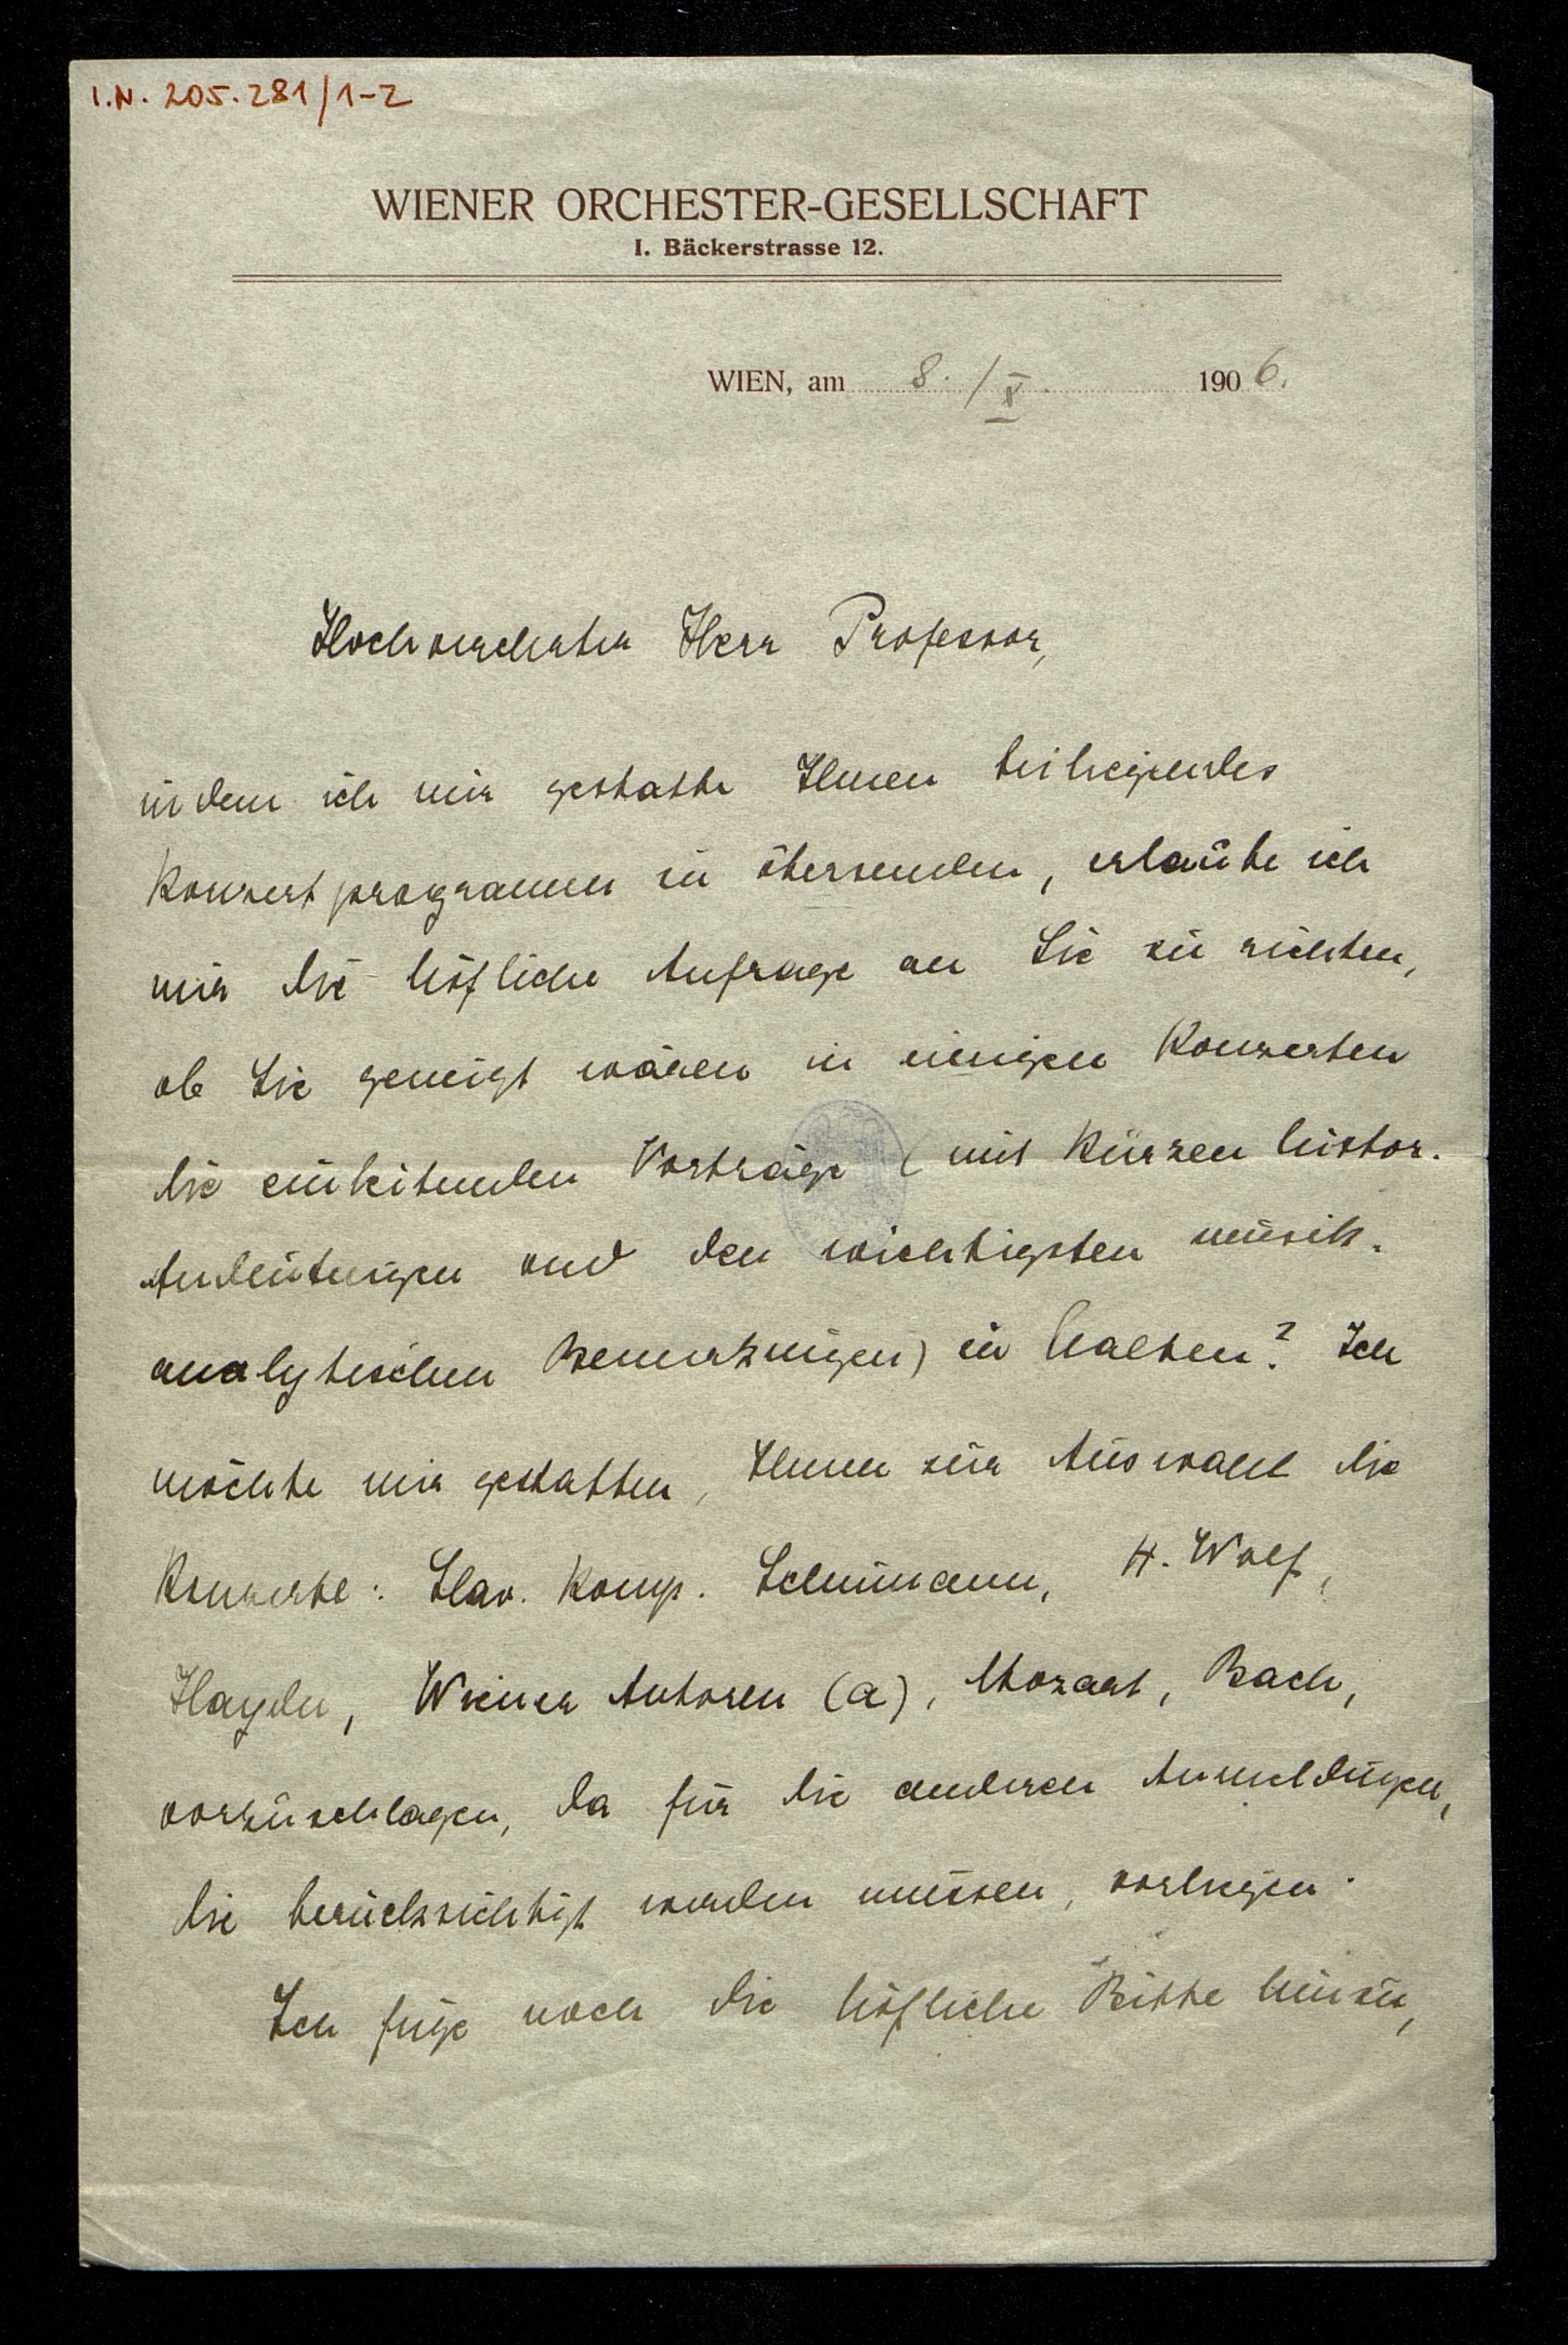 I.N. 205.281/1-2
WIENER ORCHESTER-GESELLSCHAFT
I. Bäckerstrasse 12.
WIEN, am 8./X. 1906.
Hochverehrter Herr Professor,
indem ich mir gestatte Ihnen beiliegendes
Konzertprogramm zu übersenden, erlaube ich
mir die höfliche Anfrage an Sie zu richten,
ob Sie geneigt wären in einigen Konzerten
die einleitenden Vorträge (mit kurzen histor.
Andeutungen und den wichtigsten musik.
analytischen Bemerkungen) zu halten? Ich
möchte mir gestatten, Ihnen zur Auswahl die
Konzerte: Slav. Komp. Schumann, H. Wolf,
Haydn, Wiener Autoren (a), Mozart, Bach,
vorzuschlagen, da für die anderen Anmeldungen,
die berücksichtigt werden müssen, vorliegen.
Ich füge noch die höfliche Bitte hinzu,